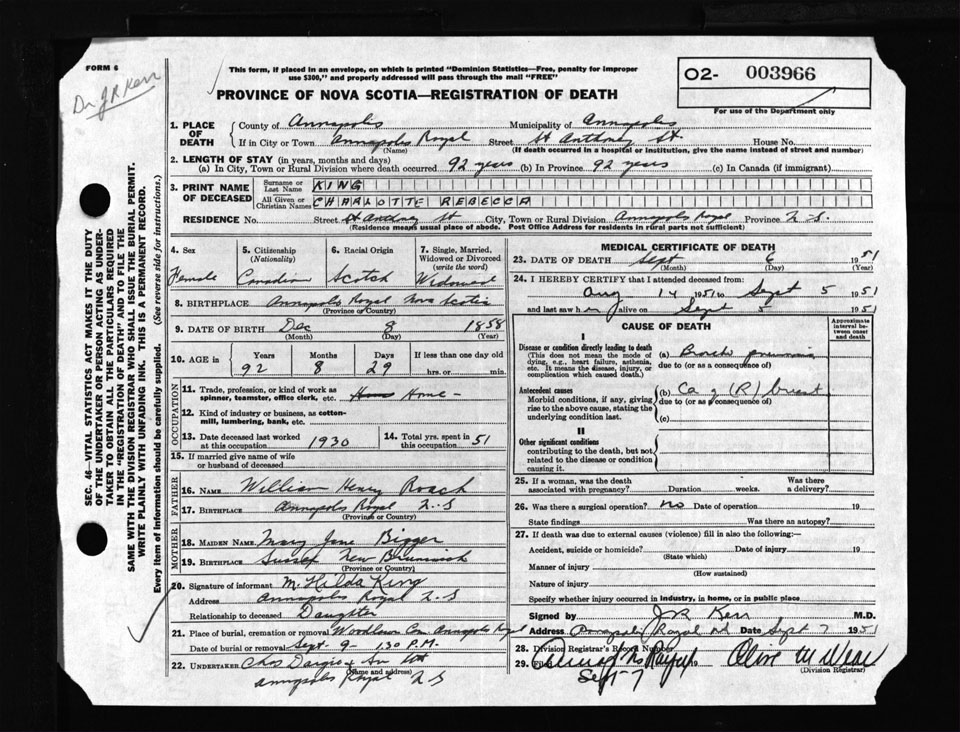 FORM 6
Dr J R Kerr
This form, if placed in an envelope, on which is printed "Dominion Statistics—Free, penalty for improper
use $300," and properly addressed will pass through the mail "FREE"
PROVINCE OF NOVA SCOTIA—REGISTRATION OF DEATH
O2- 003966
For use of the Department only
1. PLACE OF DEATH
County of Annapolis Municipality of Annapolis
If in City or Town Annapolis Royal Street St Anthony St House No.
(Name) (If death occurred in a hospital or institution, give the name instead of street and number)
2. LENGTH OF STAY (in years, months and days)
(a) In City, Town or Rural Division where death occurred 92 years (b) In Province 92 years (c) In Canada (if immigrant)
3. PRINT NAME OF DECEASED
Surname or Last Name KING
All Given or Christian Names CHARLOTTE REBECCA
RESIDENCE No. Street St Anthony St City, Town or Rural Division Annapolis Royal Province N.S.
(Residence means usual place of abode. Post Office Address for residents in rural parts not sufficient)
4. Sex 5. Citizenship (Nationality) 6. Racial Origin 7. Single, Married, Widowed or Divorced (write the word)
Female Canadian Scotch Widowed
8. BIRTHPLACE Annapolis Royal Nova Scotia
(Province or Country)
9. DATE OF BIRTH Dec 8 1858
(Month) (Day) (Year)
10. AGE in Years Months Days If less than one day old
92 8 29 hrs. or min.
OCCUPATION
11. Trade, profession, or kind of work as
spinner, teamster, office clerk, etc. Home -
12. Kind of industry or business, as cotton-
mill, lumbering, bank, etc.
13. Date deceased last worked
at this occupation 1930
14. Total yrs. spent in
this occupation 51
15. If married give name of wife
or husband of deceased
FATHER
16. NAME William Henry Roach
17. BIRTHPLACE Annapolis Royal N.S
(Province or Country)
MOTHER
18. MAIDEN NAME Mary Jane Bigger
19. BIRTHPLACE Sussex New Brunswick
(Province or Country)
20. Signature of informant M. Hilda King
Address Annapolis Royal N.S
Relationship to deceased Daughter
21. Place of burial, cremation or removal Woodlawn Cem Annapolis Royal
Date of burial or removal Sept. 9- 1.30 P.M.
22. UNDERTAKER Chas Dargie & Son
(Name and address)
Annapolis Royal N.S
MEDICAL CERTIFICATE OF DEATH
23. DATE OF DEATH Sept 6 1951
(Month) (Day) (Year)
24. I HEREBY CERTIFY that I attended deceased from:
Aug 14 1951 to Sept 5 1951
and last saw her alive on Sept 5 1951
CAUSE OF DEATH
Approximate interval between onset and death
I
Disease or condition directly leading to death
(This does not mean the mode of
dying, e.g., heart failure, asthenia,
etc. It means the disease, injury, or
complication which caused death.)
(a) Broncho pneumonia
due to (or as a consequence of)
Antecedent causes
Morbid conditions, if any, giving
rise to the above cause, stating the
underlying condition last.
(b) Ca of (R) breast
due to (or as a consequence of)
(c)
II
Other significant conditions
contributing to the death, but not
related to the disease or condition
causing it.
25. If a woman, was the death
associated with pregnancy? Duration weeks. Was there
a delivery?
26. Was there a surgical operation? No Date of operation 19
State findings Was there an autopsy?
27. If death was due to external causes (violence) fill in also the following:—
Accident, suicide or homicide? Date of injury 19
(State which)
Manner of injury
(How sustained)
Nature of injury
Specify whether injury occurred in industry, in home, or in public place
Signed by J R Kerr M.D.
Address Annapolis Royal Date Sept 7 1951
28. Division Registrar's Record Number
29. Filed Sept-7 Olive M Wear
(Division Registrar)
SEC. 46—VITAL STATISTICS ACT MAKES IT THE DUTY
OF THE UNDERTAKER OR PERSON ACTING AS UNDER-
TAKER TO OBTAIN ALL THE PARTICULARS REQUIRED
IN THE "REGISTRATION OF DEATH" AND TO FILE THE
SAME WITH THE DIVISION REGISTRAR WHO SHALL ISSUE THE BURIAL PERMIT.
WRITE PLAINLY WITH UNFADING INK. THIS IS A PERMANENT RECORD.
Every item of Information should be carefully supplied. (See reverse side for instructions.)